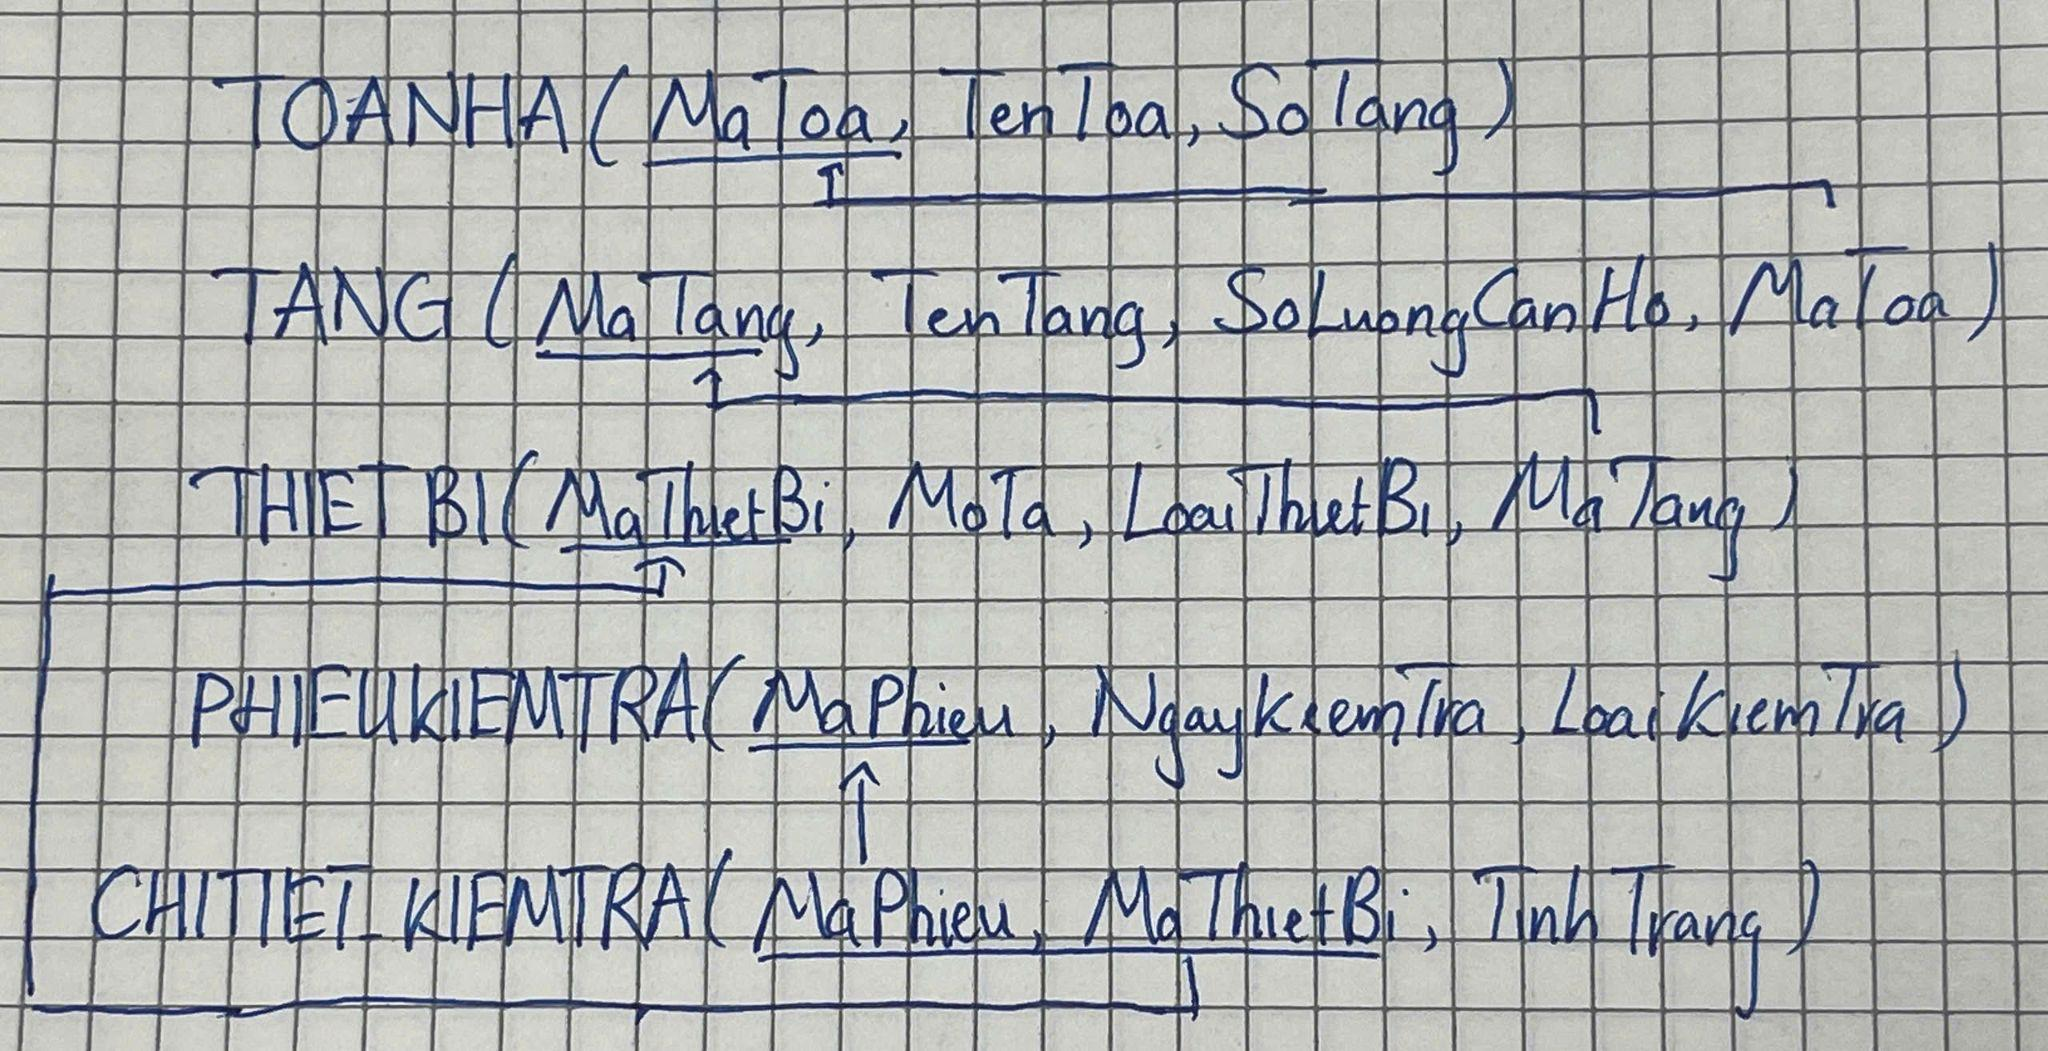 TOANHA (MaToa, TenToa, SoTang)
TANG (MaTang, TenTang, SoLuongCanHo, MaToa)
THIETBI (MaThietBi, MoTa, LoaiThietBi, MaTang)
PHIEUKIEMTRA (MaPhieu, NgayKiemTra, LoaiKiemTra)
CHITIET_KIEMTRA (MaPhieu, MaThietBi, TinhTrang)